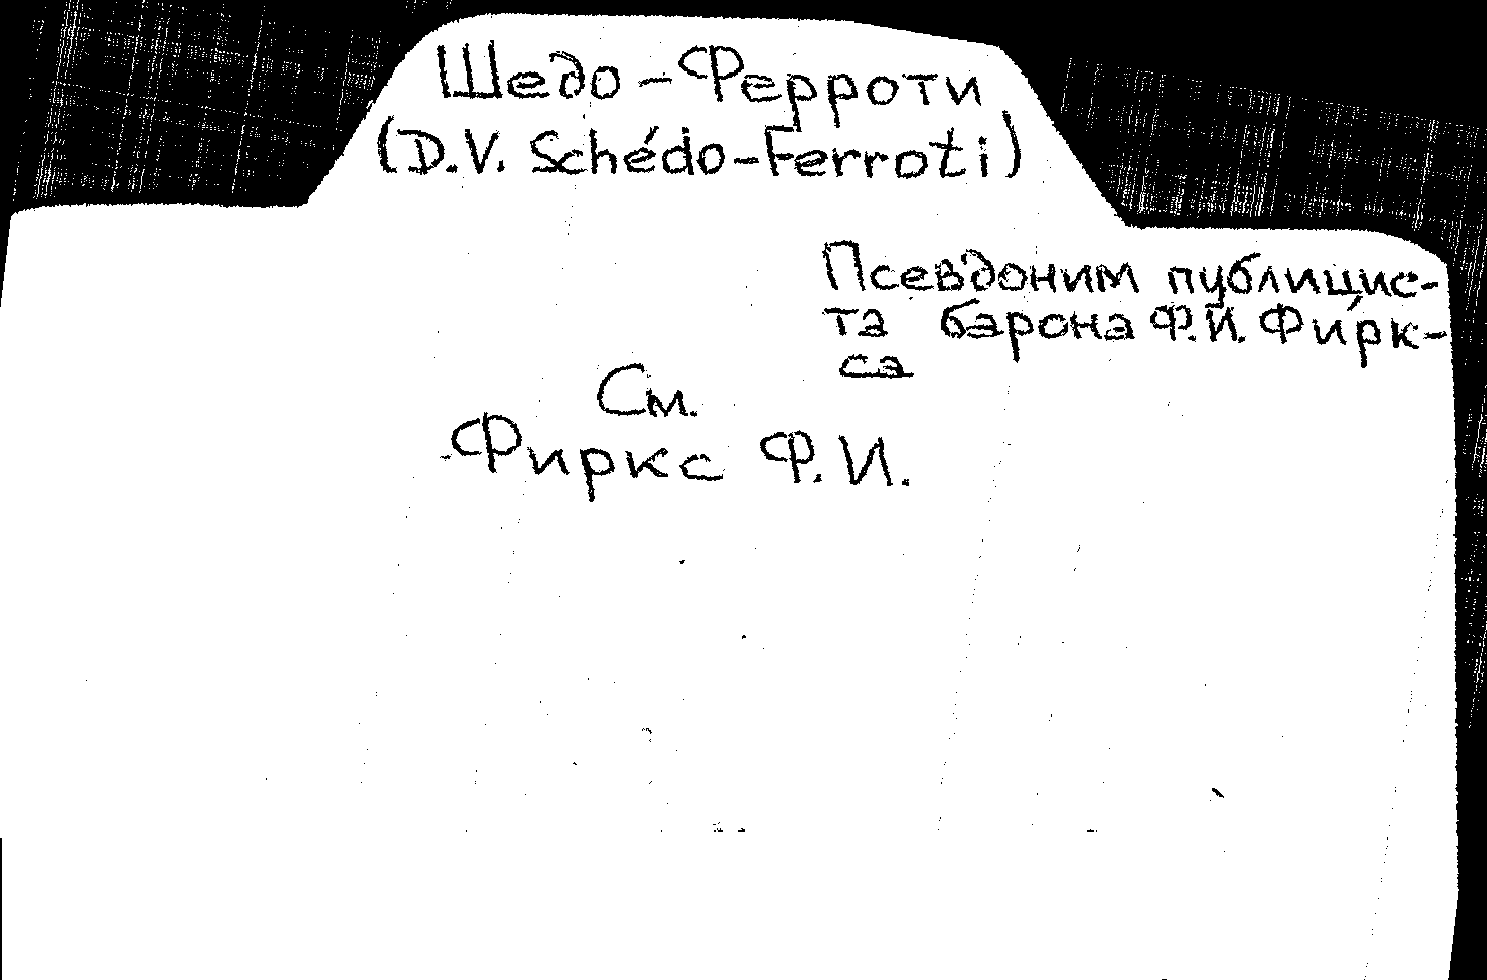 Шедо-Ферроти
(D.V. Schédo-Ferroti)
Псевдоним публицис-
та барона Ф.И. Фи́рк-
са
См.
Фиркс Ф.И.